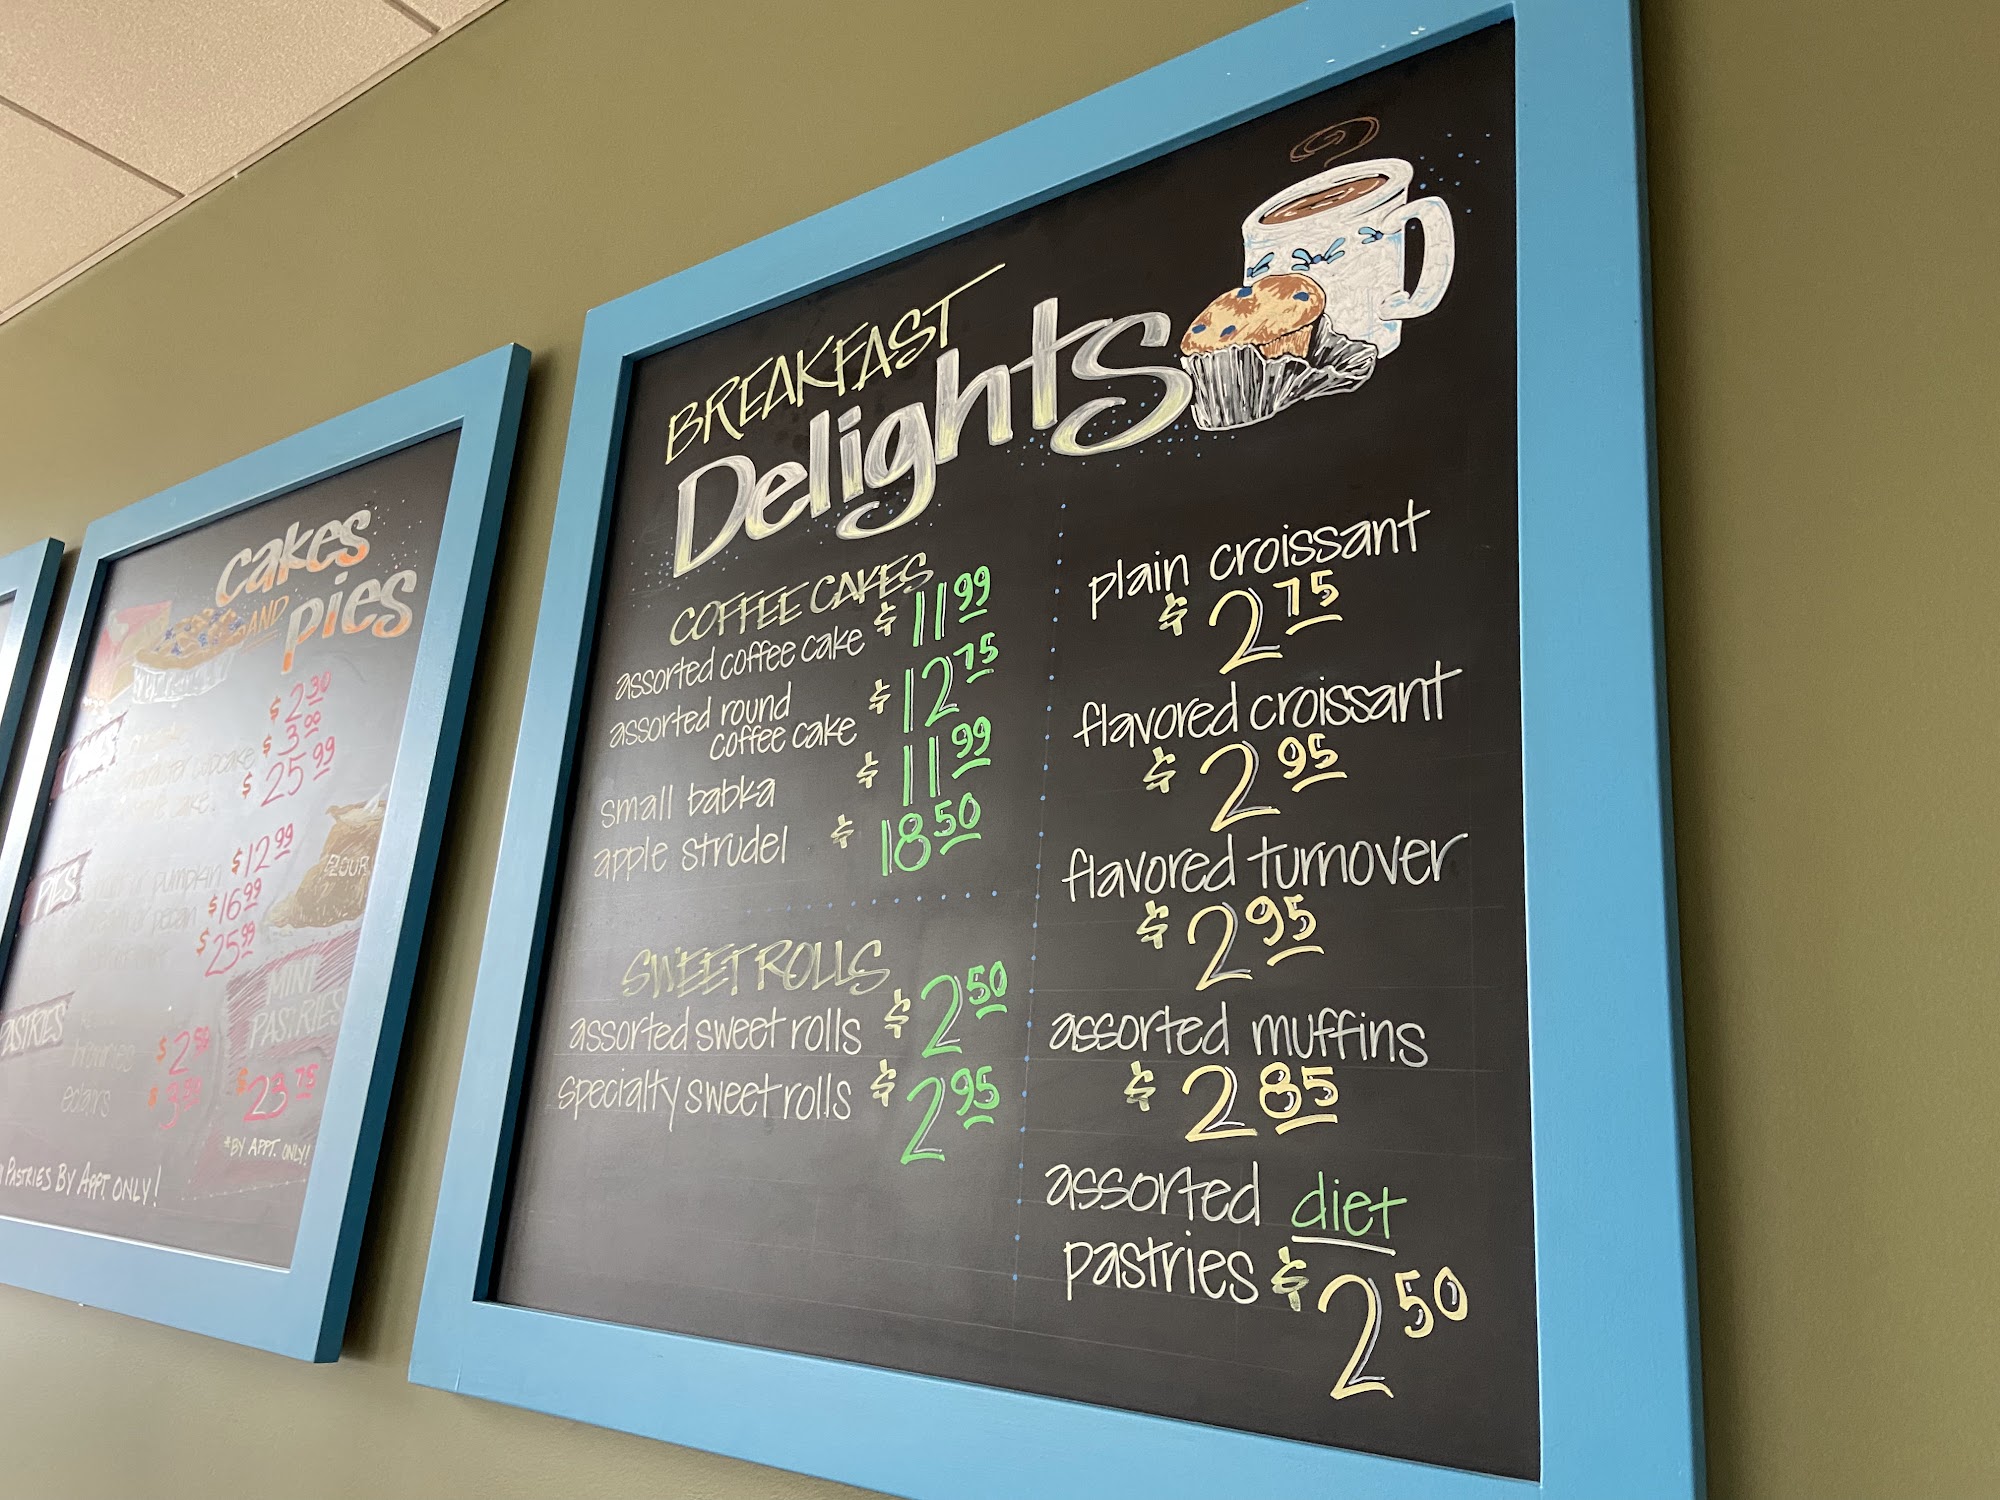 cakes
AND
pies
$2.30
cupcake $3.00
$25.99
PIES
pumpkin $12.99
pecan $16.99
$25.99
FLOUR
PASTRIES
brownies $2.50
eclairs
MINI
PASTRIES
$23.75
*BY APPT. ONLY!
PASTRIES BY APPT. ONLY!
BREAKFAST
Delights
COFFEE CAKES
assorted coffee cake $11.99
assorted round
coffee cake $12.75
small babka $11.99
apple strudel $18.50
SWEET ROLLS
assorted sweet rolls $2.50
specialty sweet rolls $2.95
plain croissant
$2.75
flavored croissant
$2.95
flavored turnover
$2.95
assorted muffins
$2.85
assorted diet
pastries $2.50